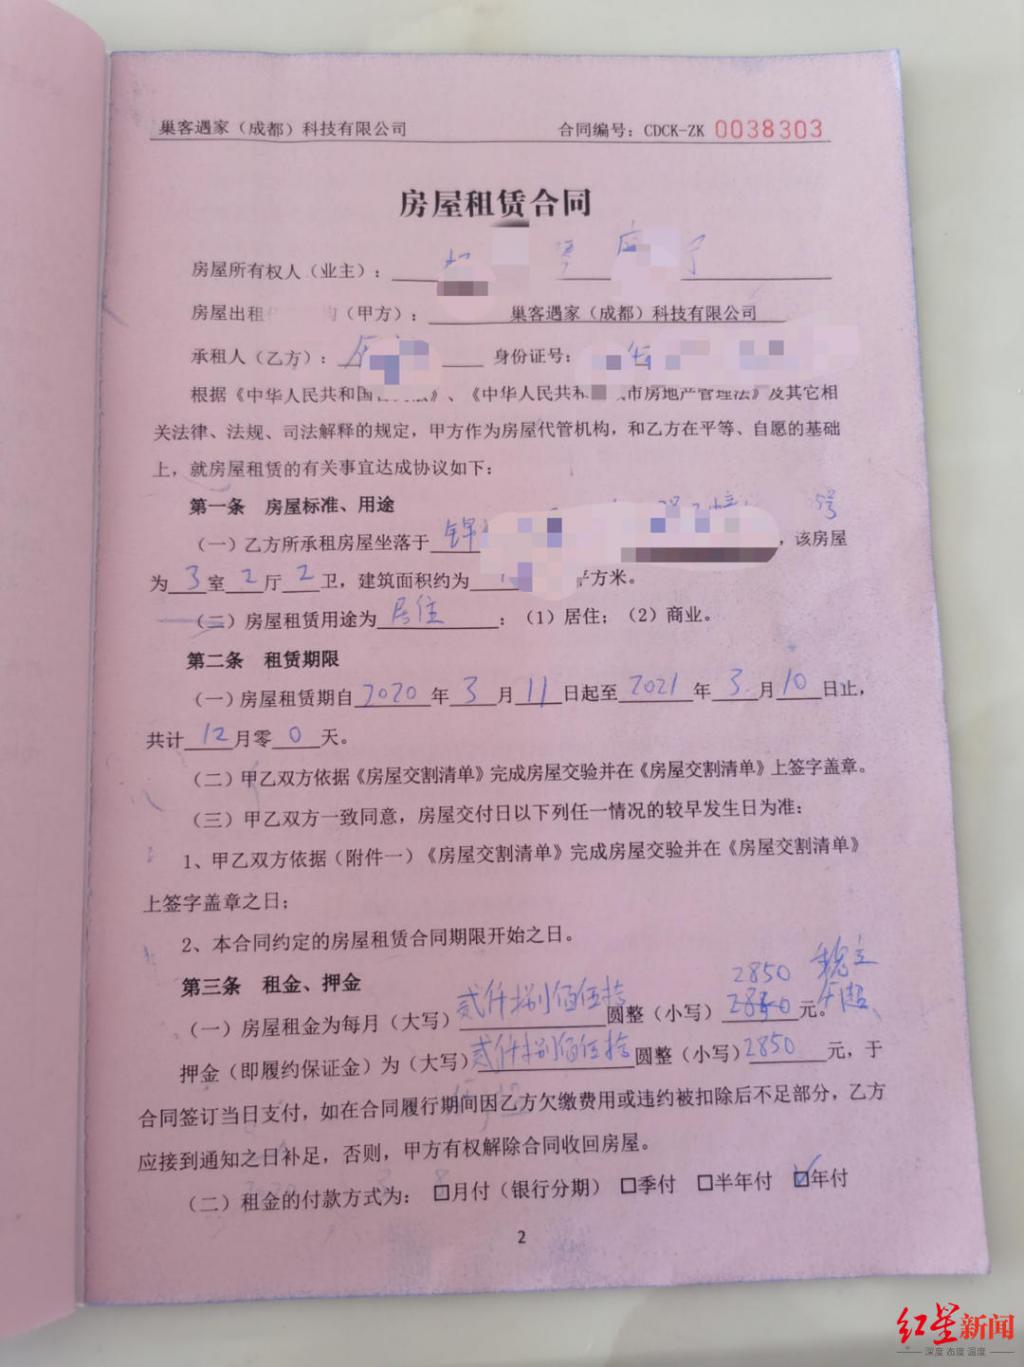 巢客遇家（成都）科技有限公司 合同编号：CDCK-ZK 0038303
房屋租赁合同
房屋所有权人（业主）：
房屋出租 （甲方）： 巢客遇家（成都）科技有限公司
承租人（乙方）： 身份证号：
根据《中华人民共和国 》、《中华人民共和 市房地产管理法》及其它相
关法律、法规、司法解释的规定，甲方作为房屋代管机构，和乙方在平等、自愿的基础
上，就房屋租赁的有关事宜达成协议如下：
第一条 房屋标准、用途
（一）乙方所承租房屋坐落于 锦 号，该房屋
为 3 室 2 厅 2 卫，建筑面积约为 平方米。
（二）房屋租赁用途为 居住 ：（1）居住；（2）商业。
第二条 租赁期限
（一）房屋租赁期自 2020 年 3 月 11 日起至 2021 年 3 月 10 日止，
共计 12 月零 0 天。
（二）甲乙双方依据《房屋交割清单》完成房屋交验并在《房屋交割清单》上签字盖章。
（三）甲乙双方一致同意，房屋交付日以下列任一情况的较早发生日为准：
1、甲乙双方依据（附件一）《房屋交割清单》完成房屋交验并在《房屋交割清单》
上签字盖章之日；
2、本合同约定的房屋租赁合同期限开始之日。
第三条 租金、押金
2850
（一）房屋租金为每月（大写） 贰仟捌佰伍拾 圆整（小写） 2850 元。
押金（即履约保证金）为（大写） 贰仟捌佰伍拾 圆整（小写） 2850 元，于
合同签订当日支付，如在合同履行期间因乙方欠缴费用或违约被扣除后不足部分，乙方
应接到通知之日补足，否则，甲方有权解除合同收回房屋。
（二）租金的付款方式为： □月付（银行分期） □季付 □半年付 ☑年付
2
红星新闻
深度 态度 温度